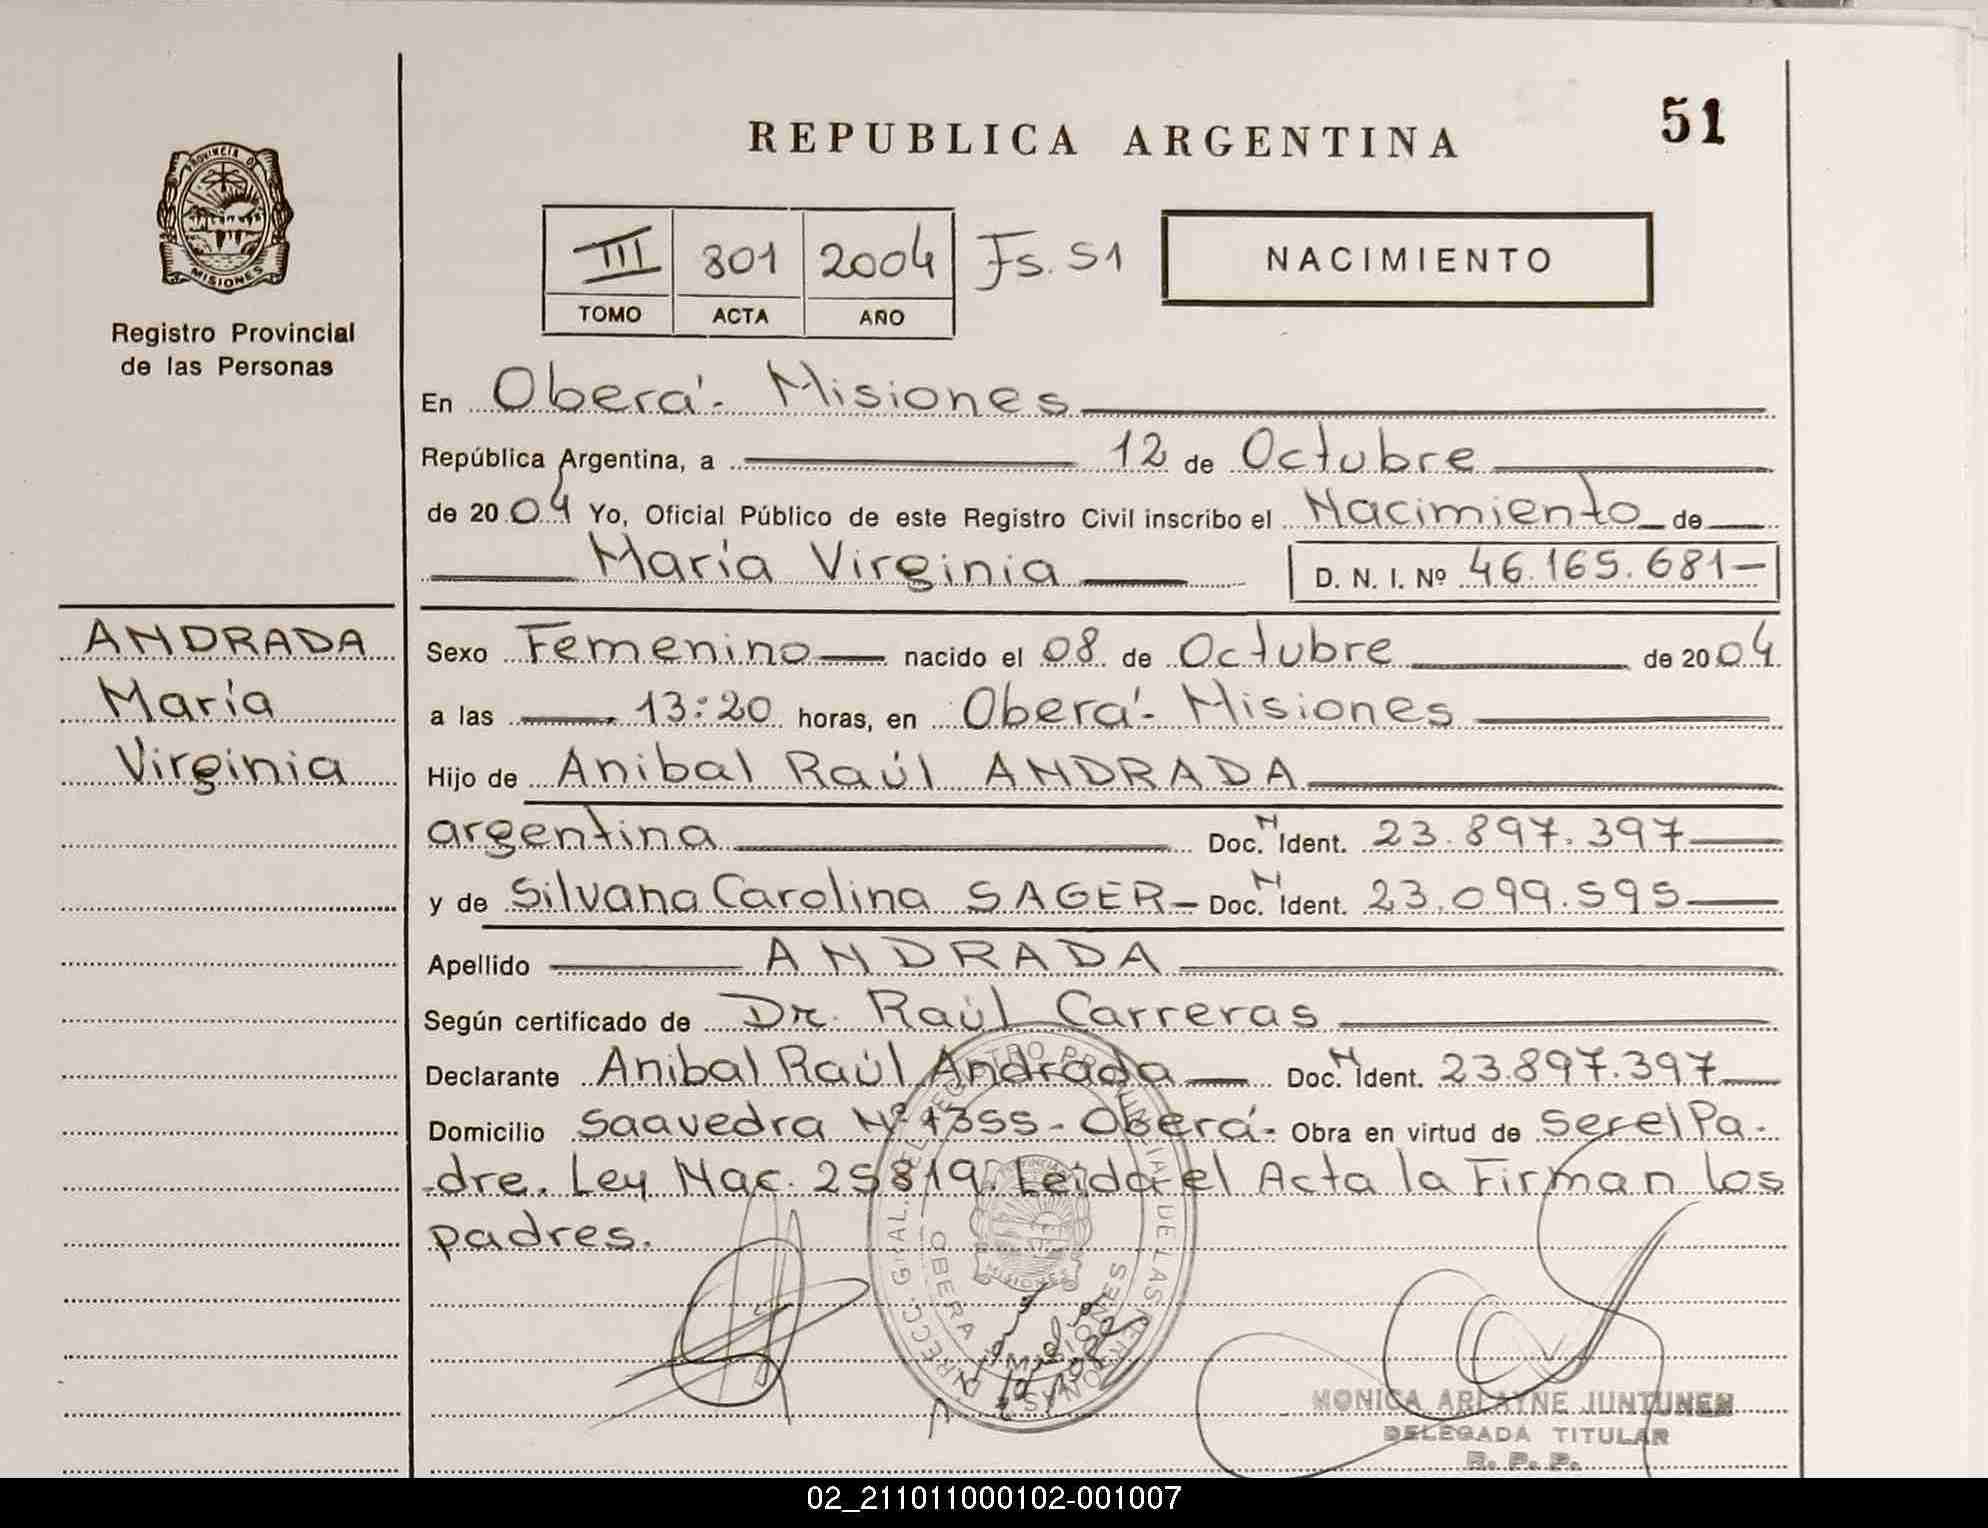 51
REPUBLICA ARGENTINA
PROVINCIA DE
MISIONES
Registro Provincial
de las Personas
III 801 2004 Fs. 51
TOMO ACTA AÑO
NACIMIENTO
En Oberá - Misiones
República Argentina, a 12 de Octubre
de 2004 Yo, Oficial Público de este Registro Civil inscribo el Nacimiento de
María Virginia D. N. I. Nº 46.165.681-
ANDRADA
María
Virginia
Sexo Femenino nacido el 08 de Octubre de 2004
a las 13:20 horas, en Oberá - Misiones
Hijo de Anibal Raúl ANDRADA
argentina Doc. N Ident. 23.897.397
y de Silvana Carolina SAGER - Doc. N Ident. 23.099.595
Apellido ANDRADA
Según certificado de Dr. Raúl Carreras
Declarante Anibal Raúl Andrada Doc. N Ident. 23.897.397
Domicilio Saavedra Nº 1355 - Oberá - Obra en virtud de ser el Pa-
dre. Ley Nac. 25819. Leida el Acta la Firman los
padres.
OBERA
MISIONES
MONICA ARLAYNE JUNTUNEN
DELEGADA TITULAR
R. P. P.
02_211011000102-001007